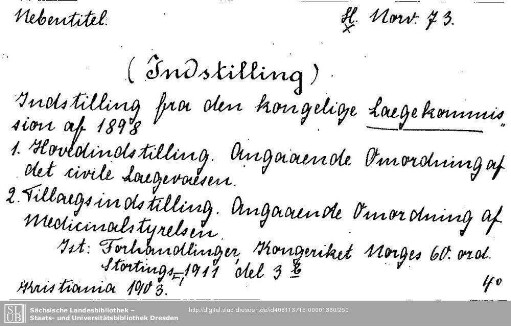 Nebentitel. H. Norv. 73.
x
(Indstilling)
Indstilling fra den kongelige Laegekommis„
sion af 1898
1. Hovedindstilling. Angaaende Omordning af
det civile Laegevaesen.
2. Tillaegsindstilling. Angaaende Omordning af
Medicinalstyrelsen.
Ist: Forhandlinger, Kongeriket Norges 60. ord.
Stortings=, 1911 del 3
Kristiania 1903. 4°
Sächsische Landesbibliothek –
Staats- und Universitätsbibliothek Dresden